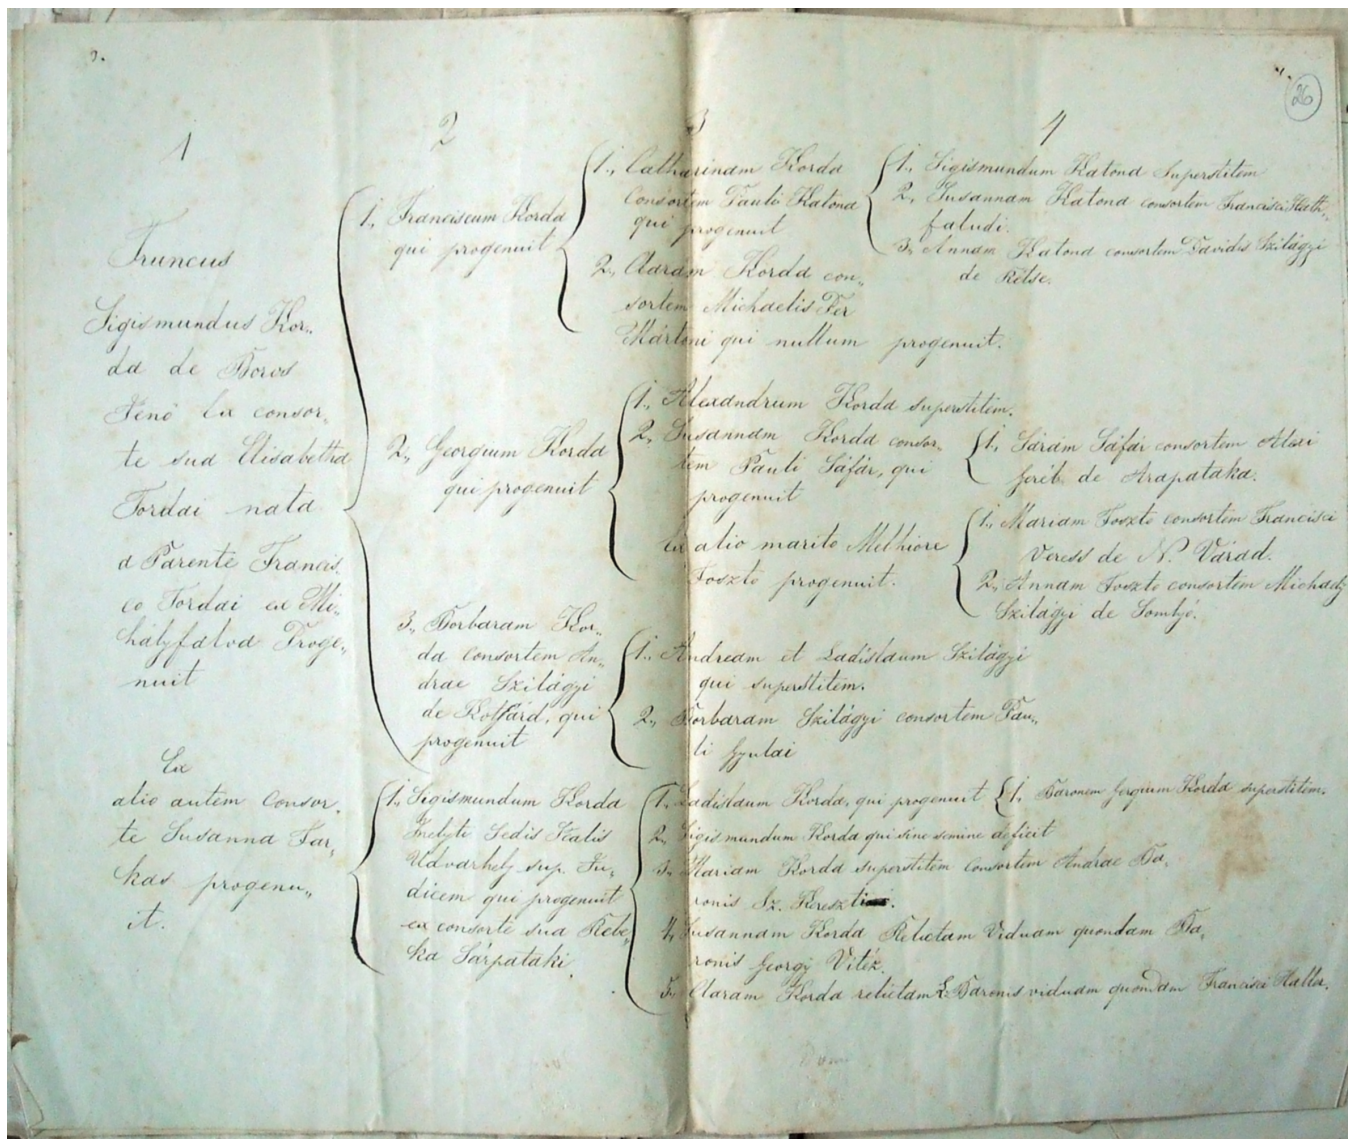 26
1
2
3
4
Truncus
Sigismundus Kor„
da de Boros
Jenő Ex consor„
te sua Elisabetha
Tordai nata
a Parente Francis„
co Tordai ex Mi„
hályfalva Proge„
nuit
Ex
alio autem Consor„
te Susanna Far„
kas progenu„
it.
1., Franciscum Korda
qui progenuit
2., Georgium Korda
qui progenuit
3., Borbaram Kor„
da consortem An„
drae Szilágyi
de, qui
progenuit
1., Sigismundum Korda
Inclyte Sedis Sialis
Udvarhely sup. Ju„
dicem qui progenuit
ex consorte sua Rebe„
ka Sárpataki.
1., Catharinam Korda
Consortem Pauli Katona
qui progenuit
2., Claram Korda con„
sortem Michaelis Fer
Mártoni qui nullum progenuit.
1., Alexandrum Korda superstitem.
2., Susannam Korda consor„
tem Pauli Sáfár, qui
progenuit
Ex alio marito Melhiore
Foszto progenuit.
1., Andream et Ladislaum Szilágyi
qui superstitem.
2., Borbaram Szilágyi consortem Pau„
li Gyulai
1., Ladislaum Korda, qui progenuit
2., Sigismundum Korda qui sine semine deficit
3., Mariam Korda superstitem consortem Andrae Ba„
ronis Sz. Kereszti.
4., Susannam Korda Relictam Viduam quondam Ba„
ronis Georgy Vitéz.
5., Claram Korda relictam L. Baronis viduam quondam Francisci Haller.
1., Sigismundum Katona Superstitem
2., Susannam Katona consortem Francisci
faludi.
3., Annam Katona consortem Davidis Szilágyi
de Rétse.
1., Sáram Sáfár consortem Alexi
Geréb de Arapataka.
1., Mariam Foszto consortem Francisci
Veress de N. Várad.
2., Annam Foszto consortem Michaely
Szilágyi de Somlyo.
1., Baronem Gergium Korda superstitem.